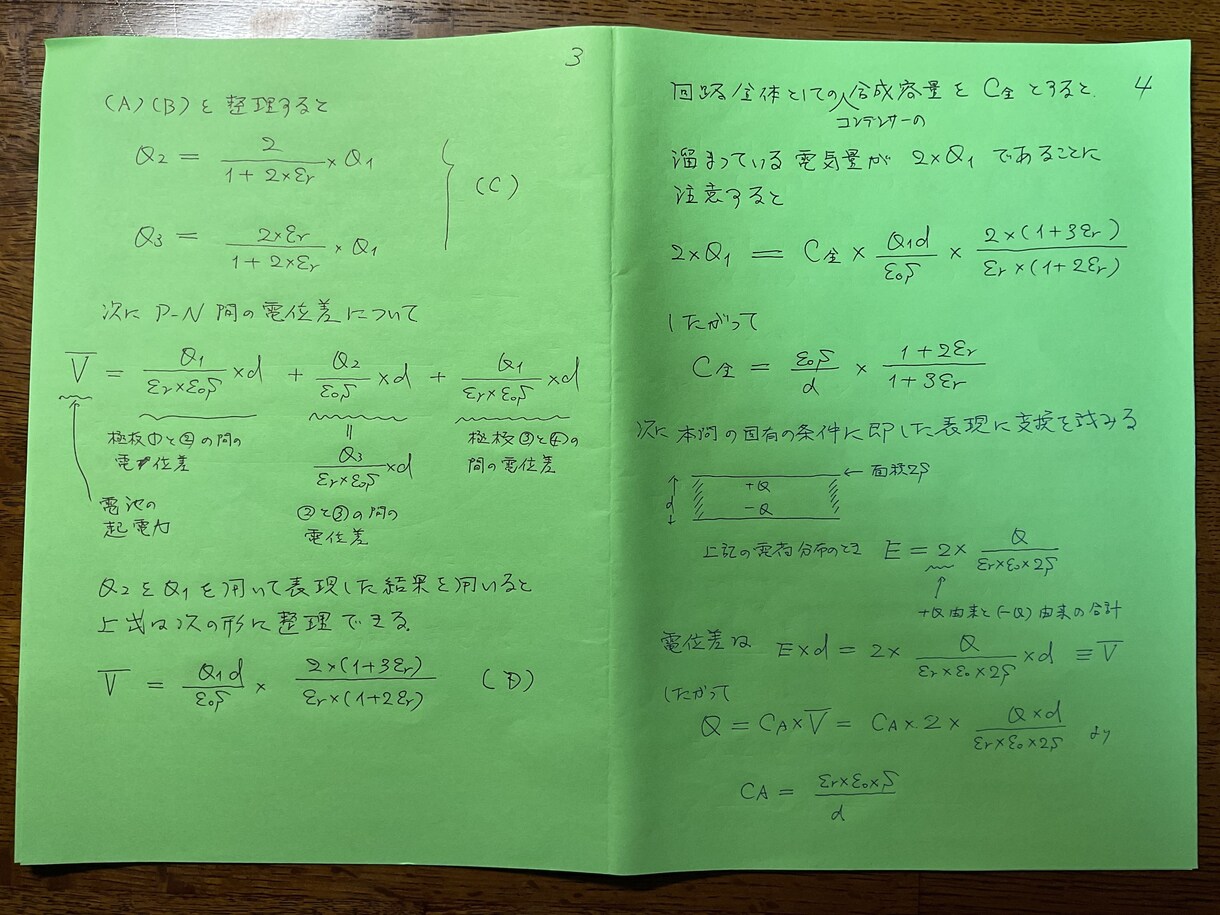 3
(A)(B)を整理すると
Q2 = 2/(1+2×εr) × Q1
Q3 = 2×εr/(1+2×εr) × Q1
(C)
次に P-N 間の電位差について
V = Q1/(εr×ε0S) ×d + Q2/(ε0S) ×d + Q1/(εr×ε0S) ×d
極板①と②の間の
電位差
電池の
起電力
||
Q3/(εr×ε0S) ×d
②と③の間の
電位差
極板③と④の
間の電位差
Q2をQ1を用いて表現した結果を用いると
上式は次の形に整理できる.
V = Q1d/(ε0S) × 2×(1+3εr)/(εr×(1+2εr)) (D)
4
回路全体としてのコンデンサーの合成容量を C全 とすると.
溜まっている電気量が 2×Q1 であることに
注意すると
2×Q1 = C全 × Q1d/(ε0S) × 2×(1+3εr)/(εr×(1+2εr))
したがって
C全 = ε0S/d × (1+2εr)/(1+3εr)
次に本問の固有の条件に即した表現に変換を試みる
d
+Q
-Q
← 面積2S
上記の電荷分布のとき E = 2× Q/(εr×ε0×2S)
+Q由来と(-Q)由来の合計
電位差は E×d = 2× Q/(εr×ε0×2S) ×d ≡ V
したがって
Q = CA×V = CA×2× Q×d/(εr×ε0×2S) より
CA = εr×ε0×S/d